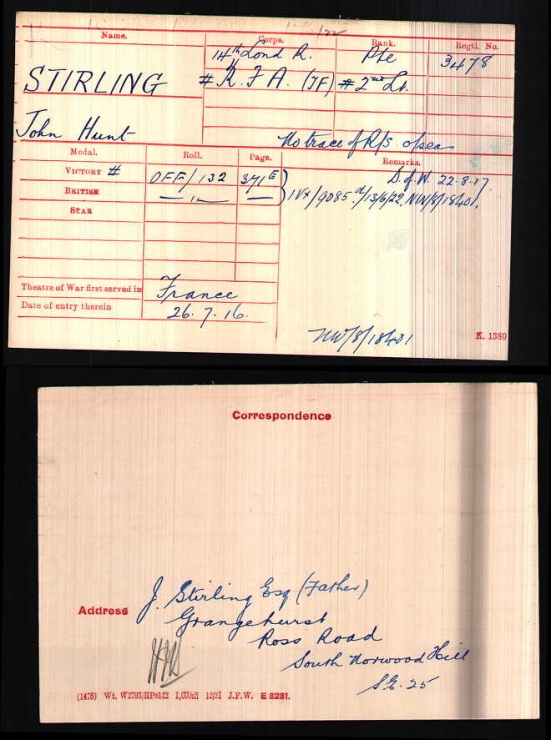 Name. Corps. Rank. Regtl. No.
14th Lond R. Pte 3478
STIRLING # R.F.A. (TF) # 2nd Lt.
John Hunt
No trace of R/S opseas
Medal. Roll. Page. Remarks.
VICTORY # OFF/132 371E D of W. 22-8-17
BRITISH — " — — IVX/9085 d/13/6/22. NW/8/18401.
STAR
Theatre of War first served in France
Date of entry therein 26.7.16.
NW/8/18401
K. 1380
Correspondence
Address
J. Stirling Esq (Father)
Grangehurst
Ross Road
South Norwood Hill
S.E. 25
(1475) Wt. 12/21 J.P.W. E 8281.